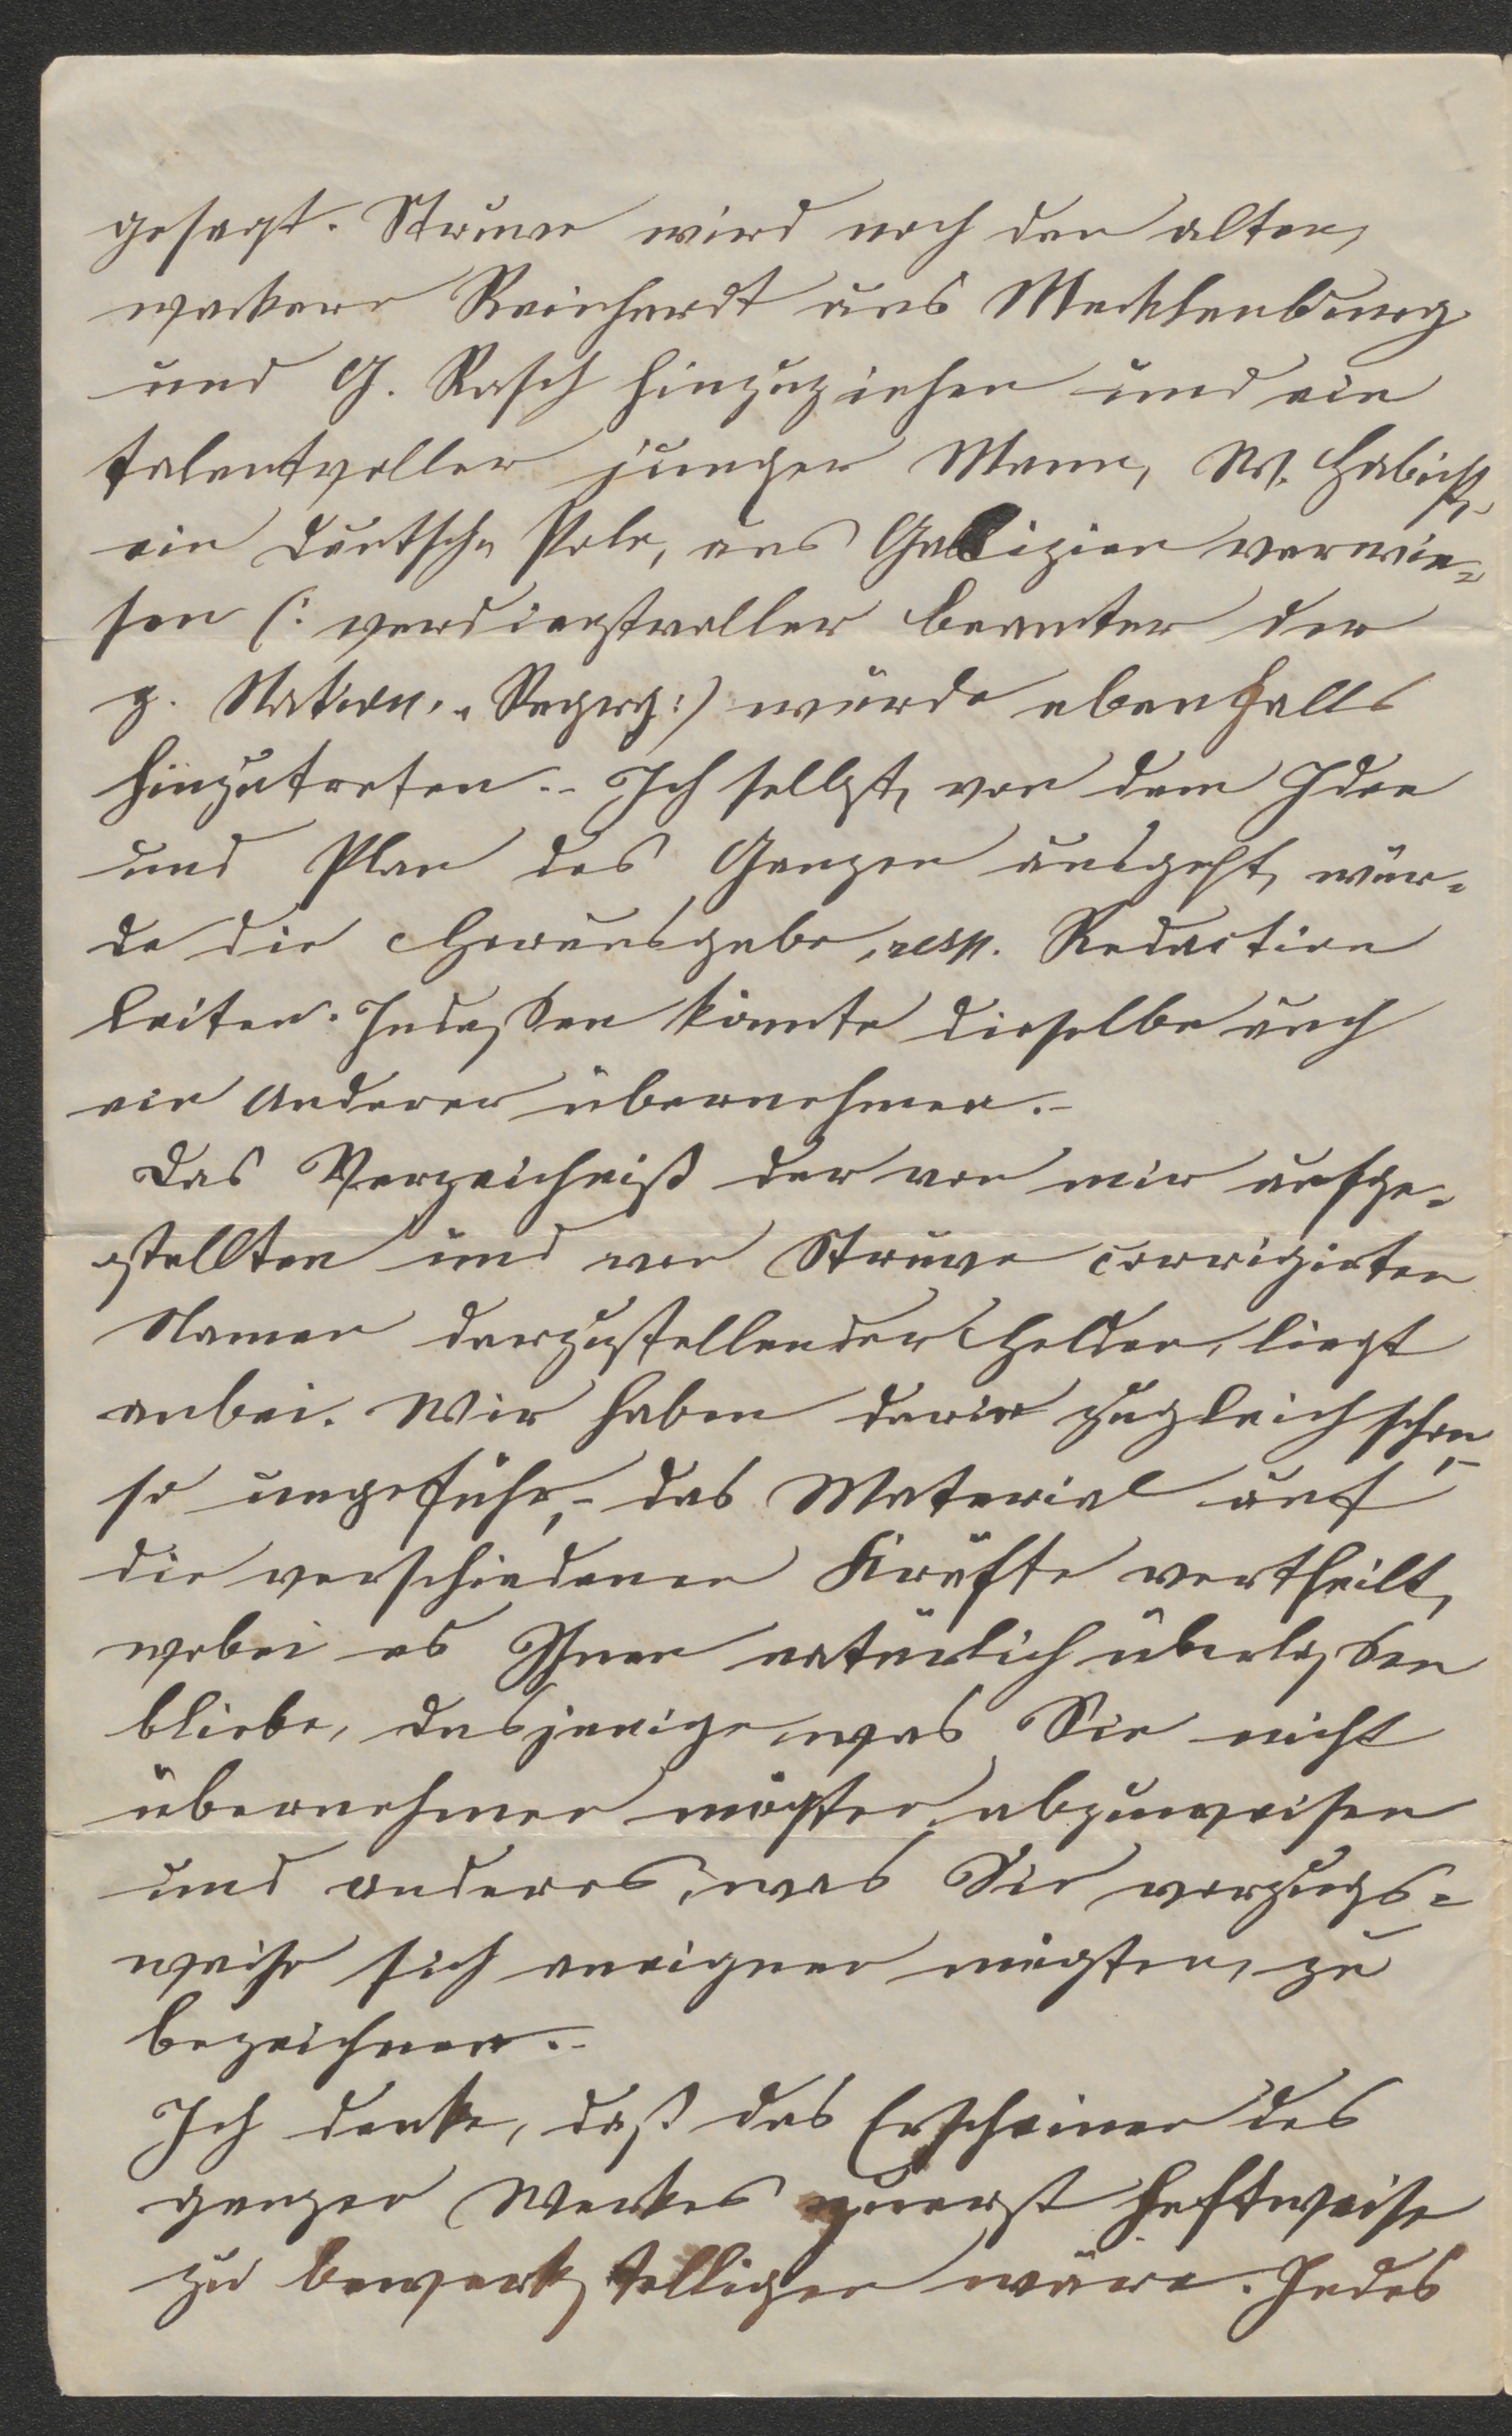 gesagt. Struve wird noch den alten,
wackern Reinhardt aus Mecklenburg
und G. Rasch hinzuziehen und ein
talentvoller junger Mann, W. Habicht,
ein deutscher Pole, aus Galizien verwie-
sen (: verdienstvoller Beamter der
g. Nation.-Regrg:) würde ebenfalls
hinzutreten.- Ich selbst, von dem Idee
und Plan des Ganzen ausgeht, wür-
de die Herausgabe, resp. Redaction
leiten. Indessen könnte dieselbe auch
ein Anderer übernehmen.-
Das Verzeichniß der von mir aufge-
stellten und von Struve corrigirten
Namen darzustellender Helden, liegt
anbei. Wir haben darin zugleich schon,-
so ungefähr,- das Material auf
die verschiedenen Kräfte vertheilt,
wobei es Ihnen natürlich überlassen
bliebe, dasjenige was Sie nicht
übernehmen mögten, abzuweisen
und anderes, was Sie vorzugs-
weise sich aneignen mögten, zu
bezeichnen.-
Ich denke, daß das Erscheinen des
ganzen Werkes zuerst heftweise
zu bewerkstelligen wäre. Jedes